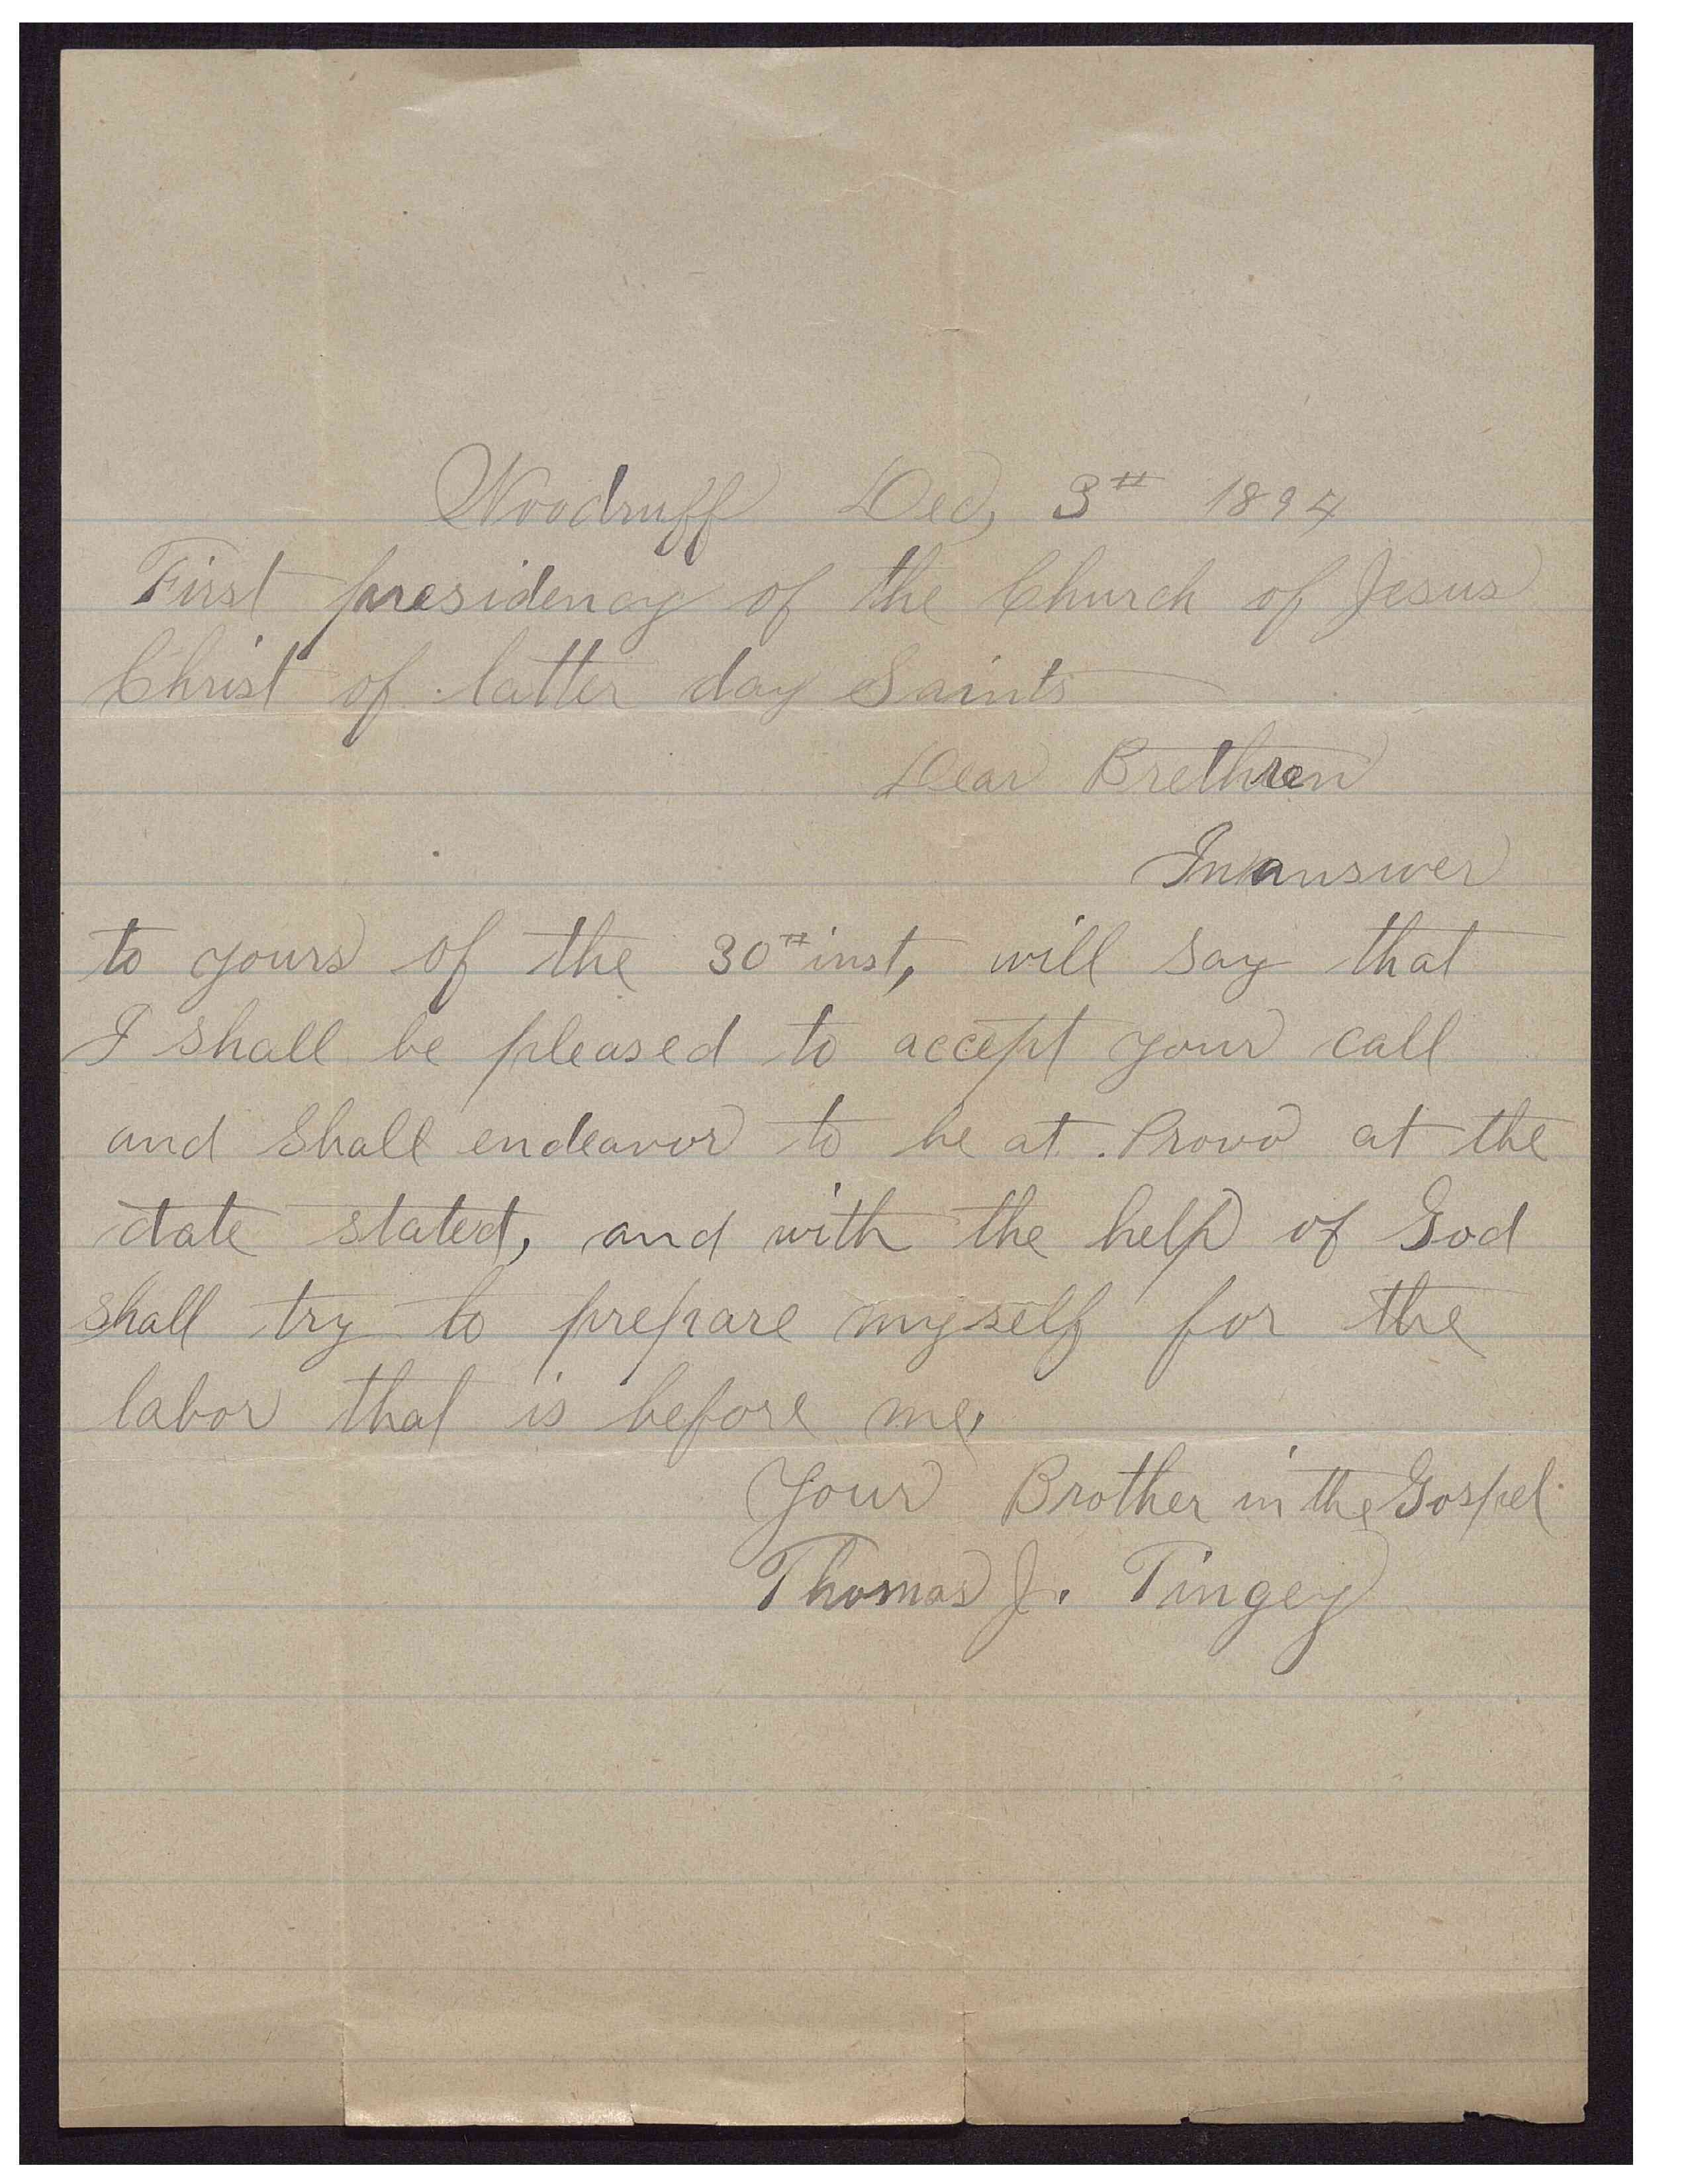 Woodruff Dec, 3th 1894
First presidency of the Church of Jesus
Christ of latter day Saints
Dear Brethren
In answer
to yours of the 30th inst, will say that
I shall be pleased to accept your call
and shall endeavor to be at Provo at the
date stated, and with the help of God
shall try to prepare myself for the
labor that is before me,
Your Brother in the Gospel
Thomas J. Tingey